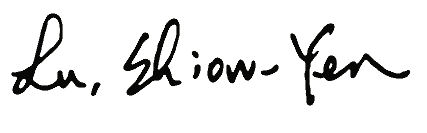 Lu, Shiow-Yen